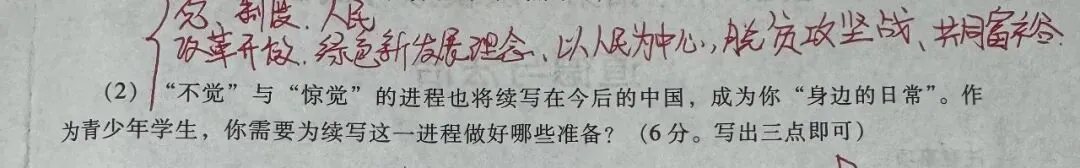 党、制度、人民
改革开放、绿色新发展理念、以人民为中心、脱贫攻坚战、共同富裕.
(2)“不觉”与“惊觉”的进程也将续写在今后的中国，成为你“身边的日常”。作
为青少年学生，你需要为续写这一进程做好哪些准备？(6分。写出三点即可)